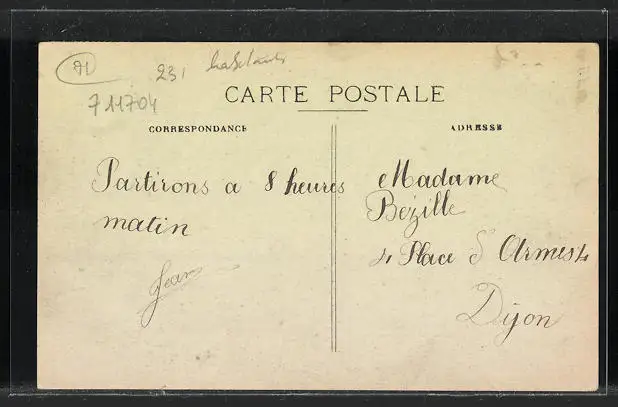 21
231 habitants
711704
CARTE POSTALE
CORRESPONDANCE
ADRESSE
Partirons a 8 heures
matin
Jean
Madame
Bézille
4 Place d'Armes 4
Dijon